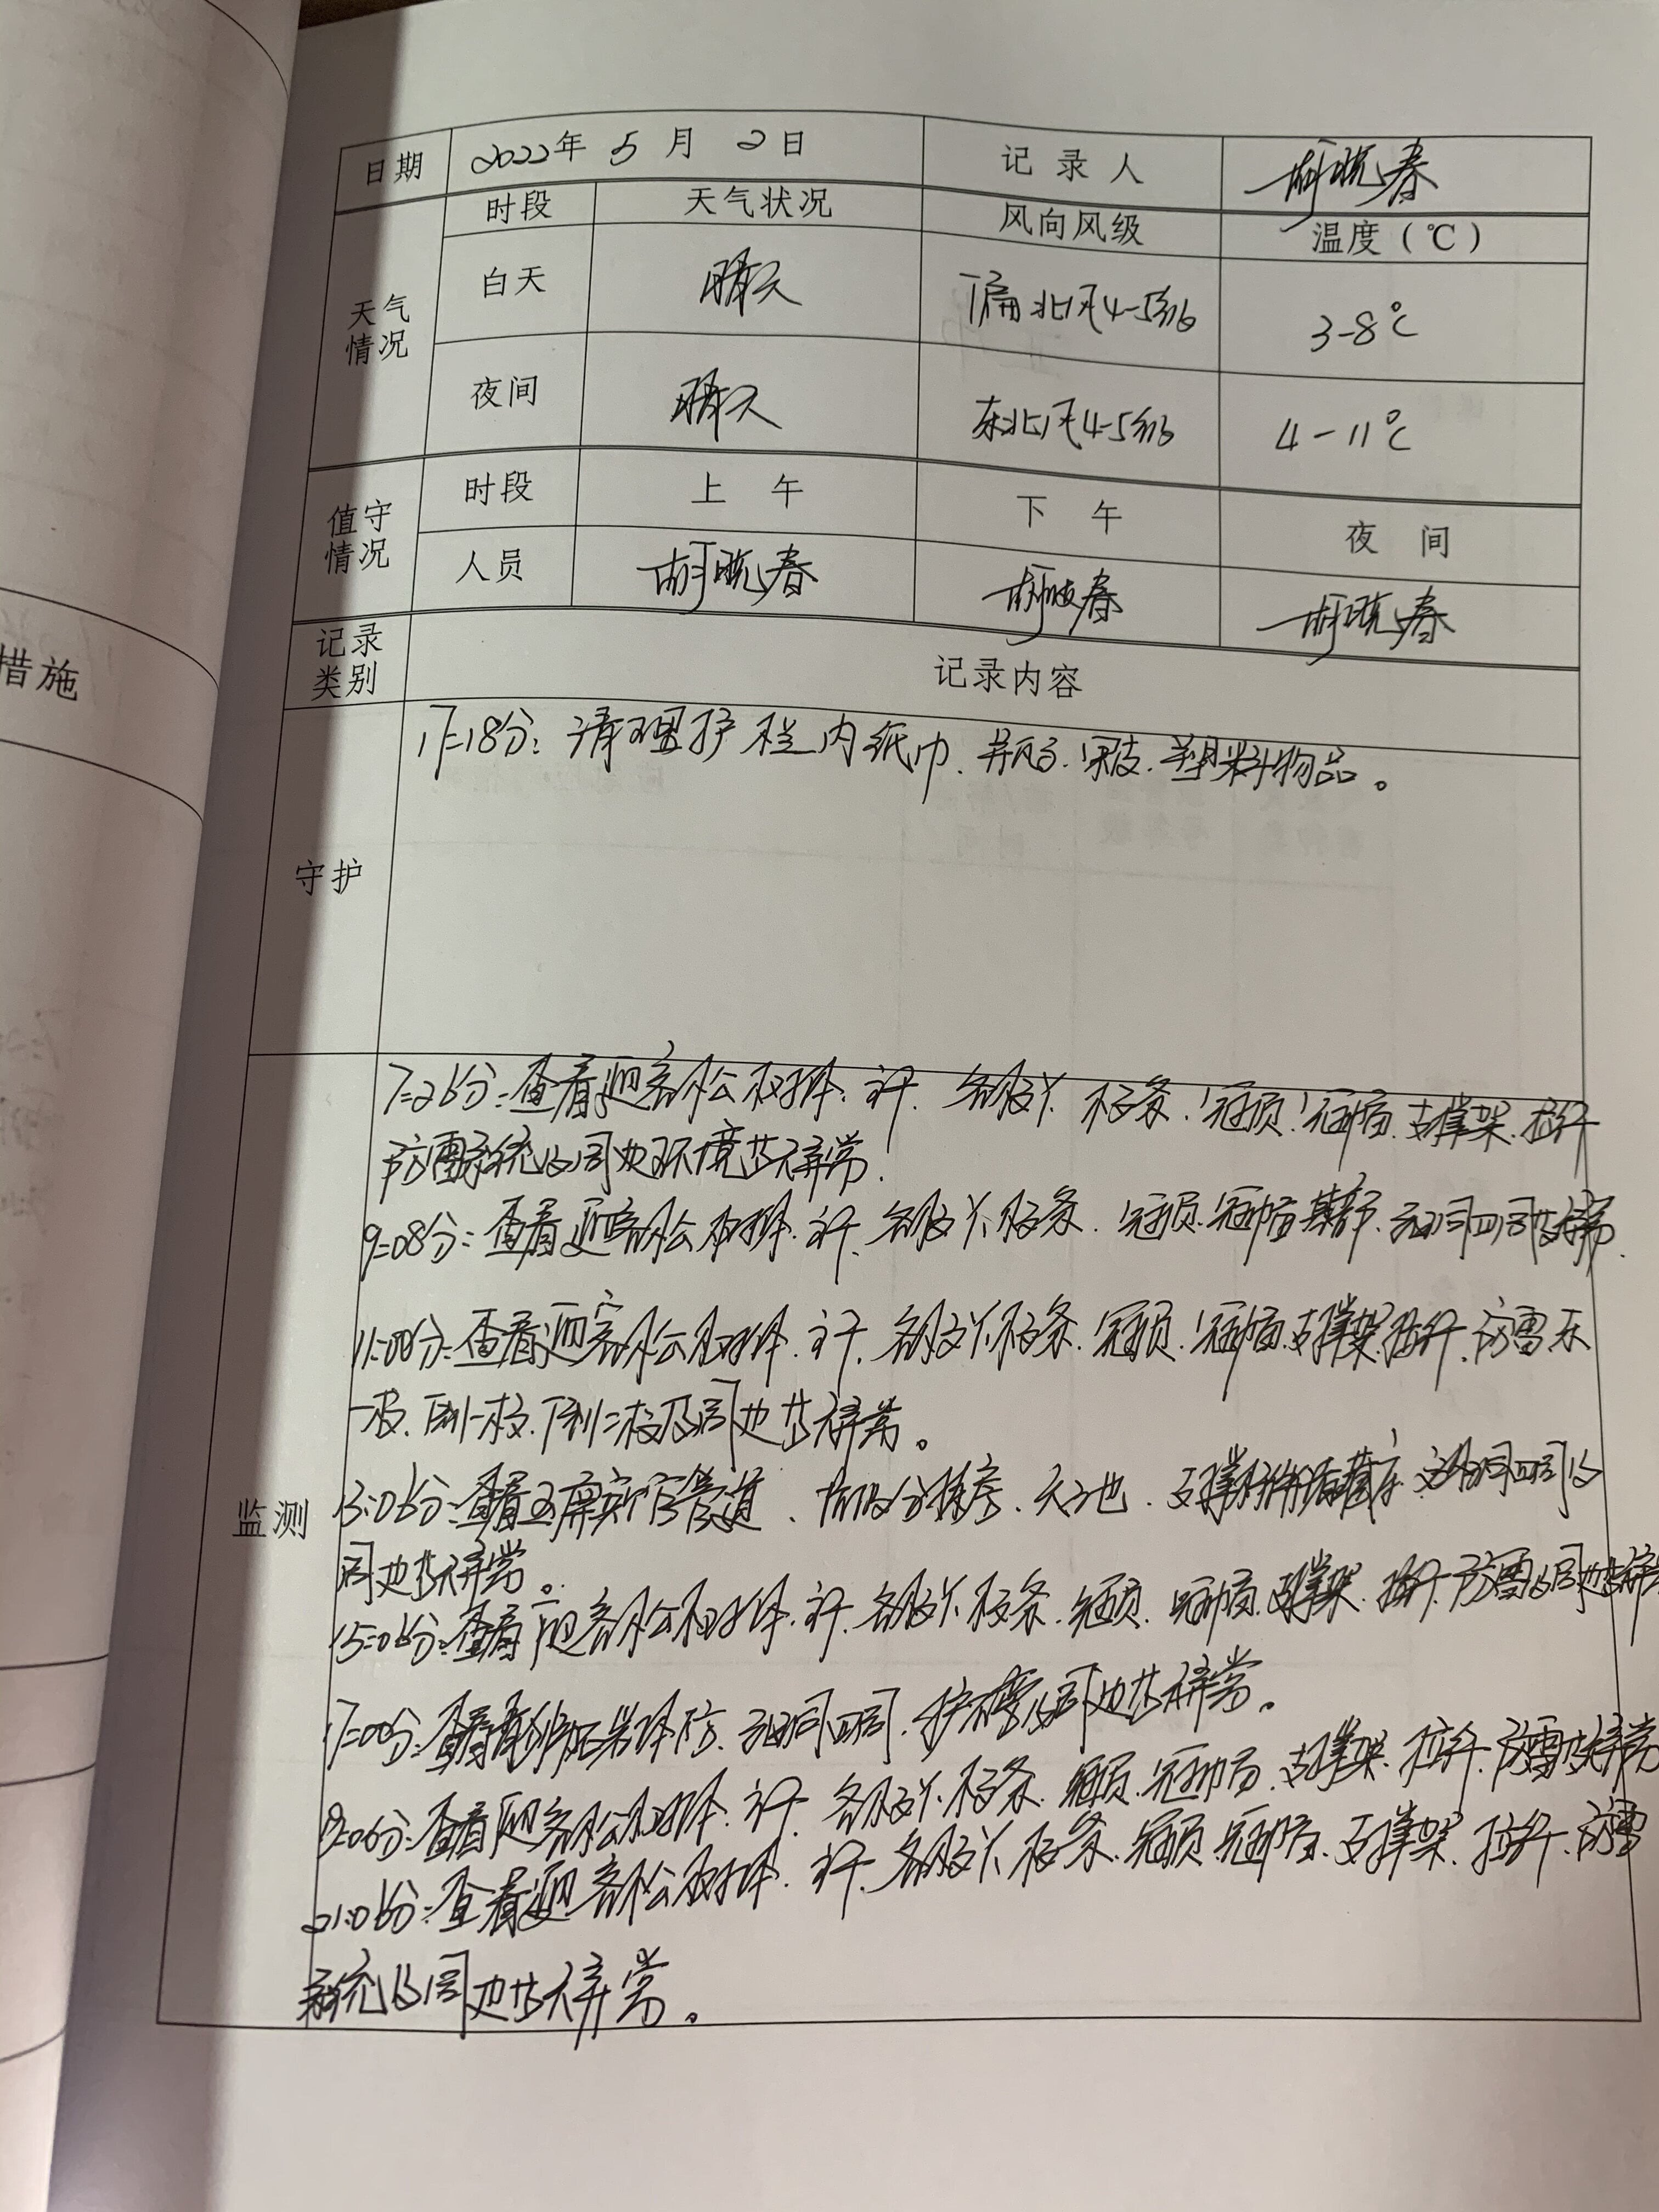 措施
日期 2022年 5 月 2日 记录人 胡晓春
天气情况 时段 天气状况 风向风级 温度(℃)
白天 晴天 偏北风4-5级 3-8℃
夜间 晴天 东北风4-5级 4-11℃
值守情况 时段 上午 下午 夜间
人员 胡晓春 胡晓春 胡晓春
记录类别 记录内容
守护
17=18分:清理护栏内纸巾、并瓶子、果皮、塑料物品。
监测
7=26分:查看迎客松树体、主干、各级枝丫、枝条、冠顶、冠幅、支撑架、拉纤
防雷系统及周边环境均无异常.
9=08分:查看迎客松树体、主干、各级枝丫、枝条、冠顶、冠幅、基部、
11=00分:查看迎客松树体、主干、各级枝丫、枝条、冠顶、冠幅、支撑架、拉纤、防雷、东
一枝、西侧一枝、下侧二枝及周边均无异常。
13:06分:查看玉屏 管道、天池、支撑
周边均无异常。
15=06分:查看迎客松树体、主干、各级枝丫、枝条、冠顶、冠幅、支撑架、拉纤、防雷及周边均无异常
17=00分:查看 及周边均无异常。
19=06分:查看迎客松树体、主干、各级枝丫、枝条、冠顶、冠幅、支撑架、拉纤、防雷均无异常
21:06分:查看迎客松树体、主干、各级枝丫、枝条、冠顶、冠幅、支撑架、拉纤、防雷
系统及周边均无异常。